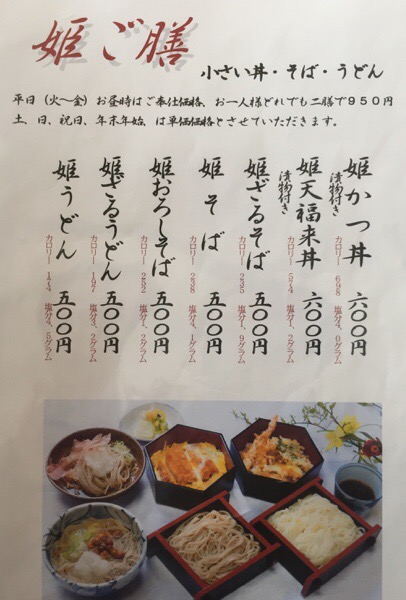 姫ご膳
小さい丼・そば・うどん
平日（火〜金）お昼時はご奉仕価格、お一人様どれでも二膳で９５０円
土、日、祝日、年末年始、は単価価格とさせていただきます。
姫かつ丼 六〇〇円
漬物付き
カロリー 698 塩分4、0グラム
姫天福来丼 六〇〇円
漬物付き
カロリー 574
姫ざるそば 五〇〇円
カロリー 235
姫そば 五〇〇円
カロリー 238
姫おろしそば 五〇〇円
カロリー 252
姫ざるうどん 五〇〇円
カロリー 197
姫うどん 五〇〇円
カロリー 174